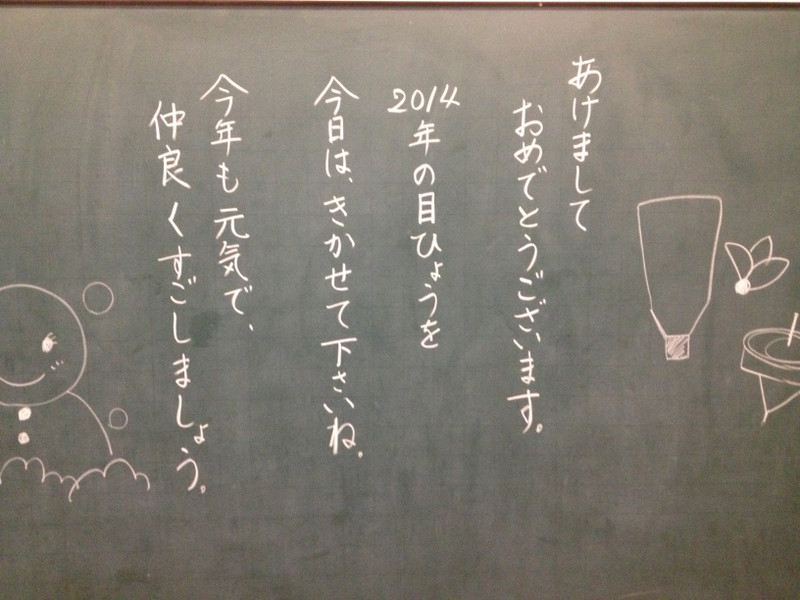 あけまして
おめでとうございます。
2014年の目ひょうを
今日は、きかせて下さいね。
今年も元気で、
仲良くすごしましょう。